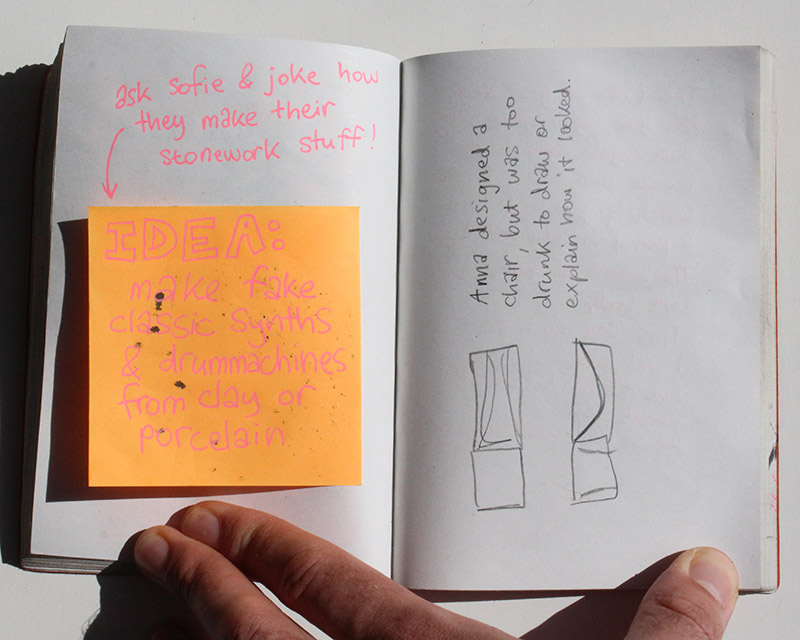 ask sofie & joke how
they make their
stonework stuff!
IDEA:
make fake
classic synths
& drummachines
from clay or
porcelain
Anna designed a
chair, but was too
drunk to draw or
explain how it looked.